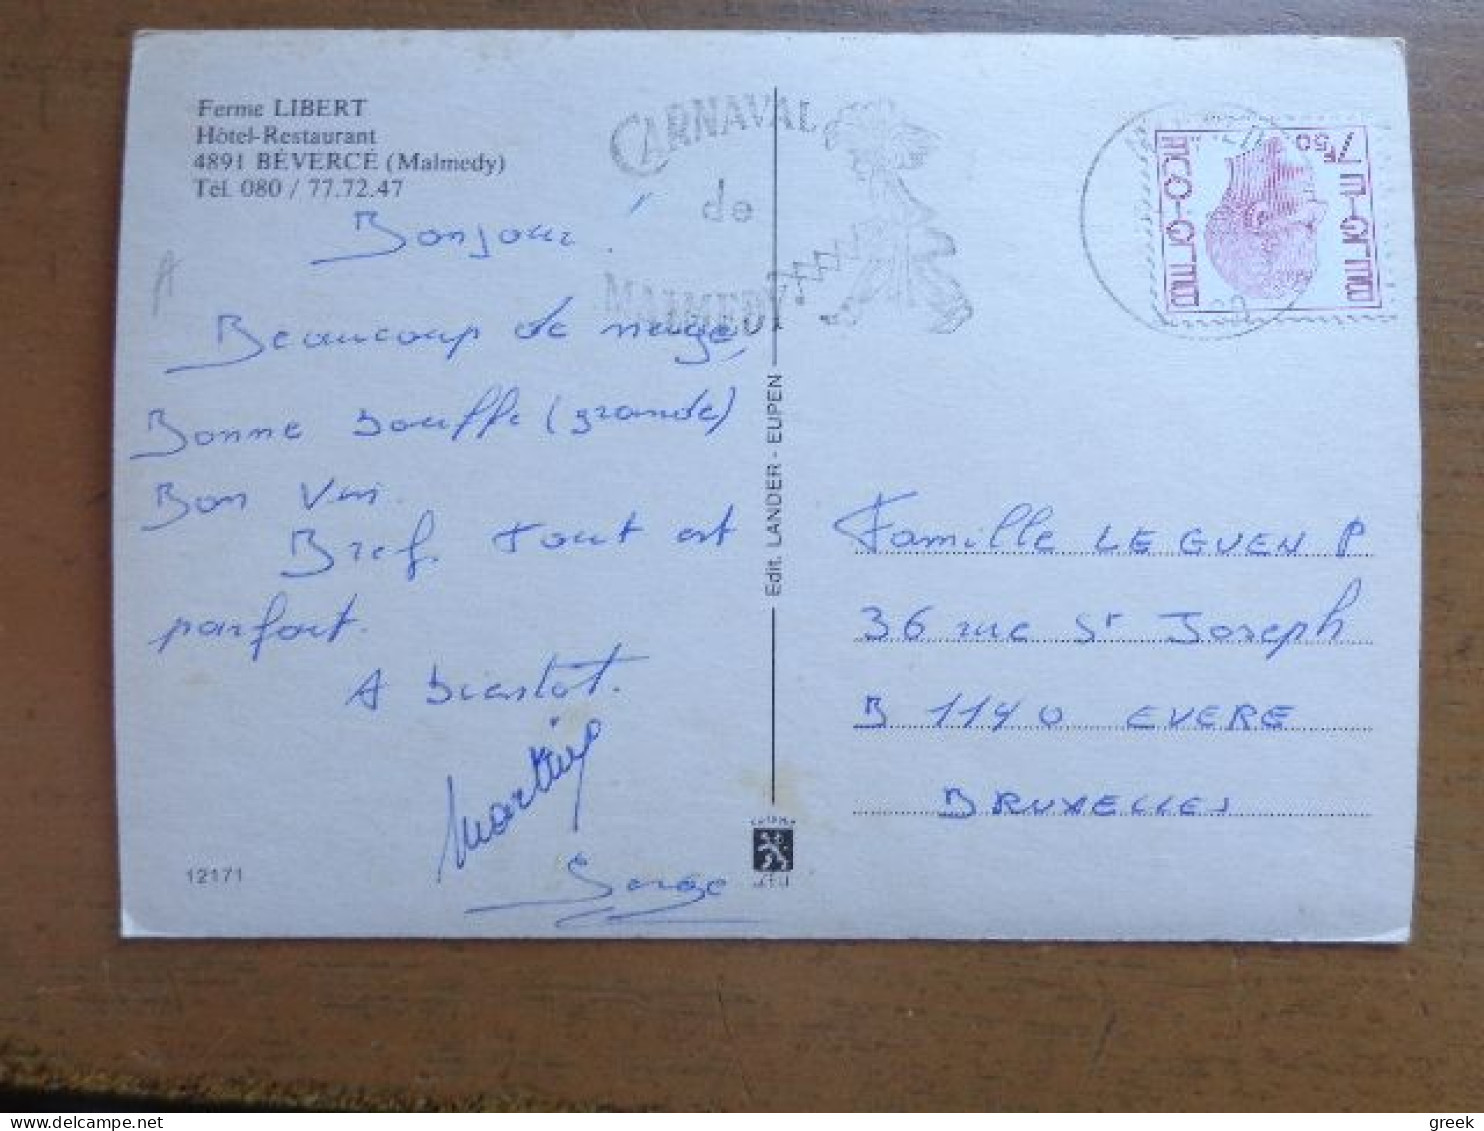 Ferme LIBERT
Hôtel-Restaurant
4891 BEVERCÉ (Malmedy)
Tél. 080 / 77.72.47
CARNAVAL
de
MALMEDY
7F50
BELGIE-BELGIQUE
A
Bonjour!
Beaucoup de neige,
Bonne bouffe (grande)
Bon vin.
Bref. tout est
parfait.
A bientot.
Martine
Serge
12171
Edit. LANDER - EUPEN
Famille LE GUEN P
36 rue St Joseph
B 1140 EVERE
BRUXELLES
greek